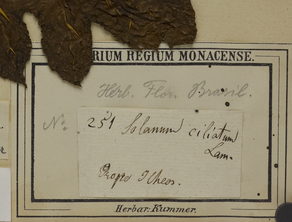 RIUM REGIUM MONACENSE.
Herb. Flor. Brasil.
No. 251 Solanum ciliatum
Lam.
Propr Ilheos.
Herbar. Kummer.